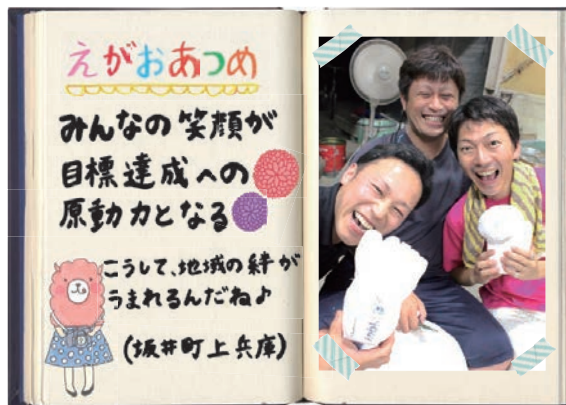 えがおあつめ
みんなの笑顔が
目標達成への
原動力となる
こうして、地域の絆が
うまれるんだね♪
(坂井町上兵庫)